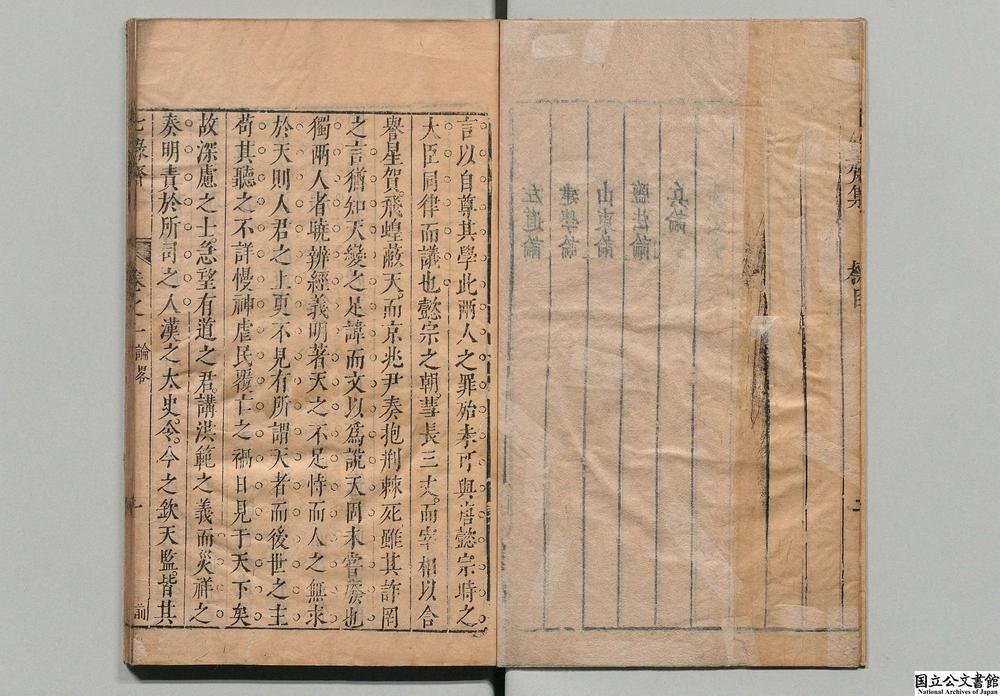 言以自尊其學此兩人之罪殆未可與唐懿宗時之
大臣同律而議也懿宗之朝彗長三丈而宰相以合
譽星賀飛蝗蔽天而京兆尹奏抱荆棘死雖其詐罔
之言猶知天變之足諱而文以爲說天固未嘗廢也
獨兩人者曉辨經義明著天之不足恃而人之無求
於天則人君之上更不見有所謂天者而後世之主
苟其聽之不詳慢神虐民覆亡之禍日見于天下矣
故深慮之士急望有道之君講洪範之義而災祥之
奏明責於所司之人漢之太史令今之欽天監皆其
七錄齋 卷之一 論畧 一 前
兵論
鹽法論
山東論
建學論
左道論
齋集
國立公文書館
National Archives of Japan